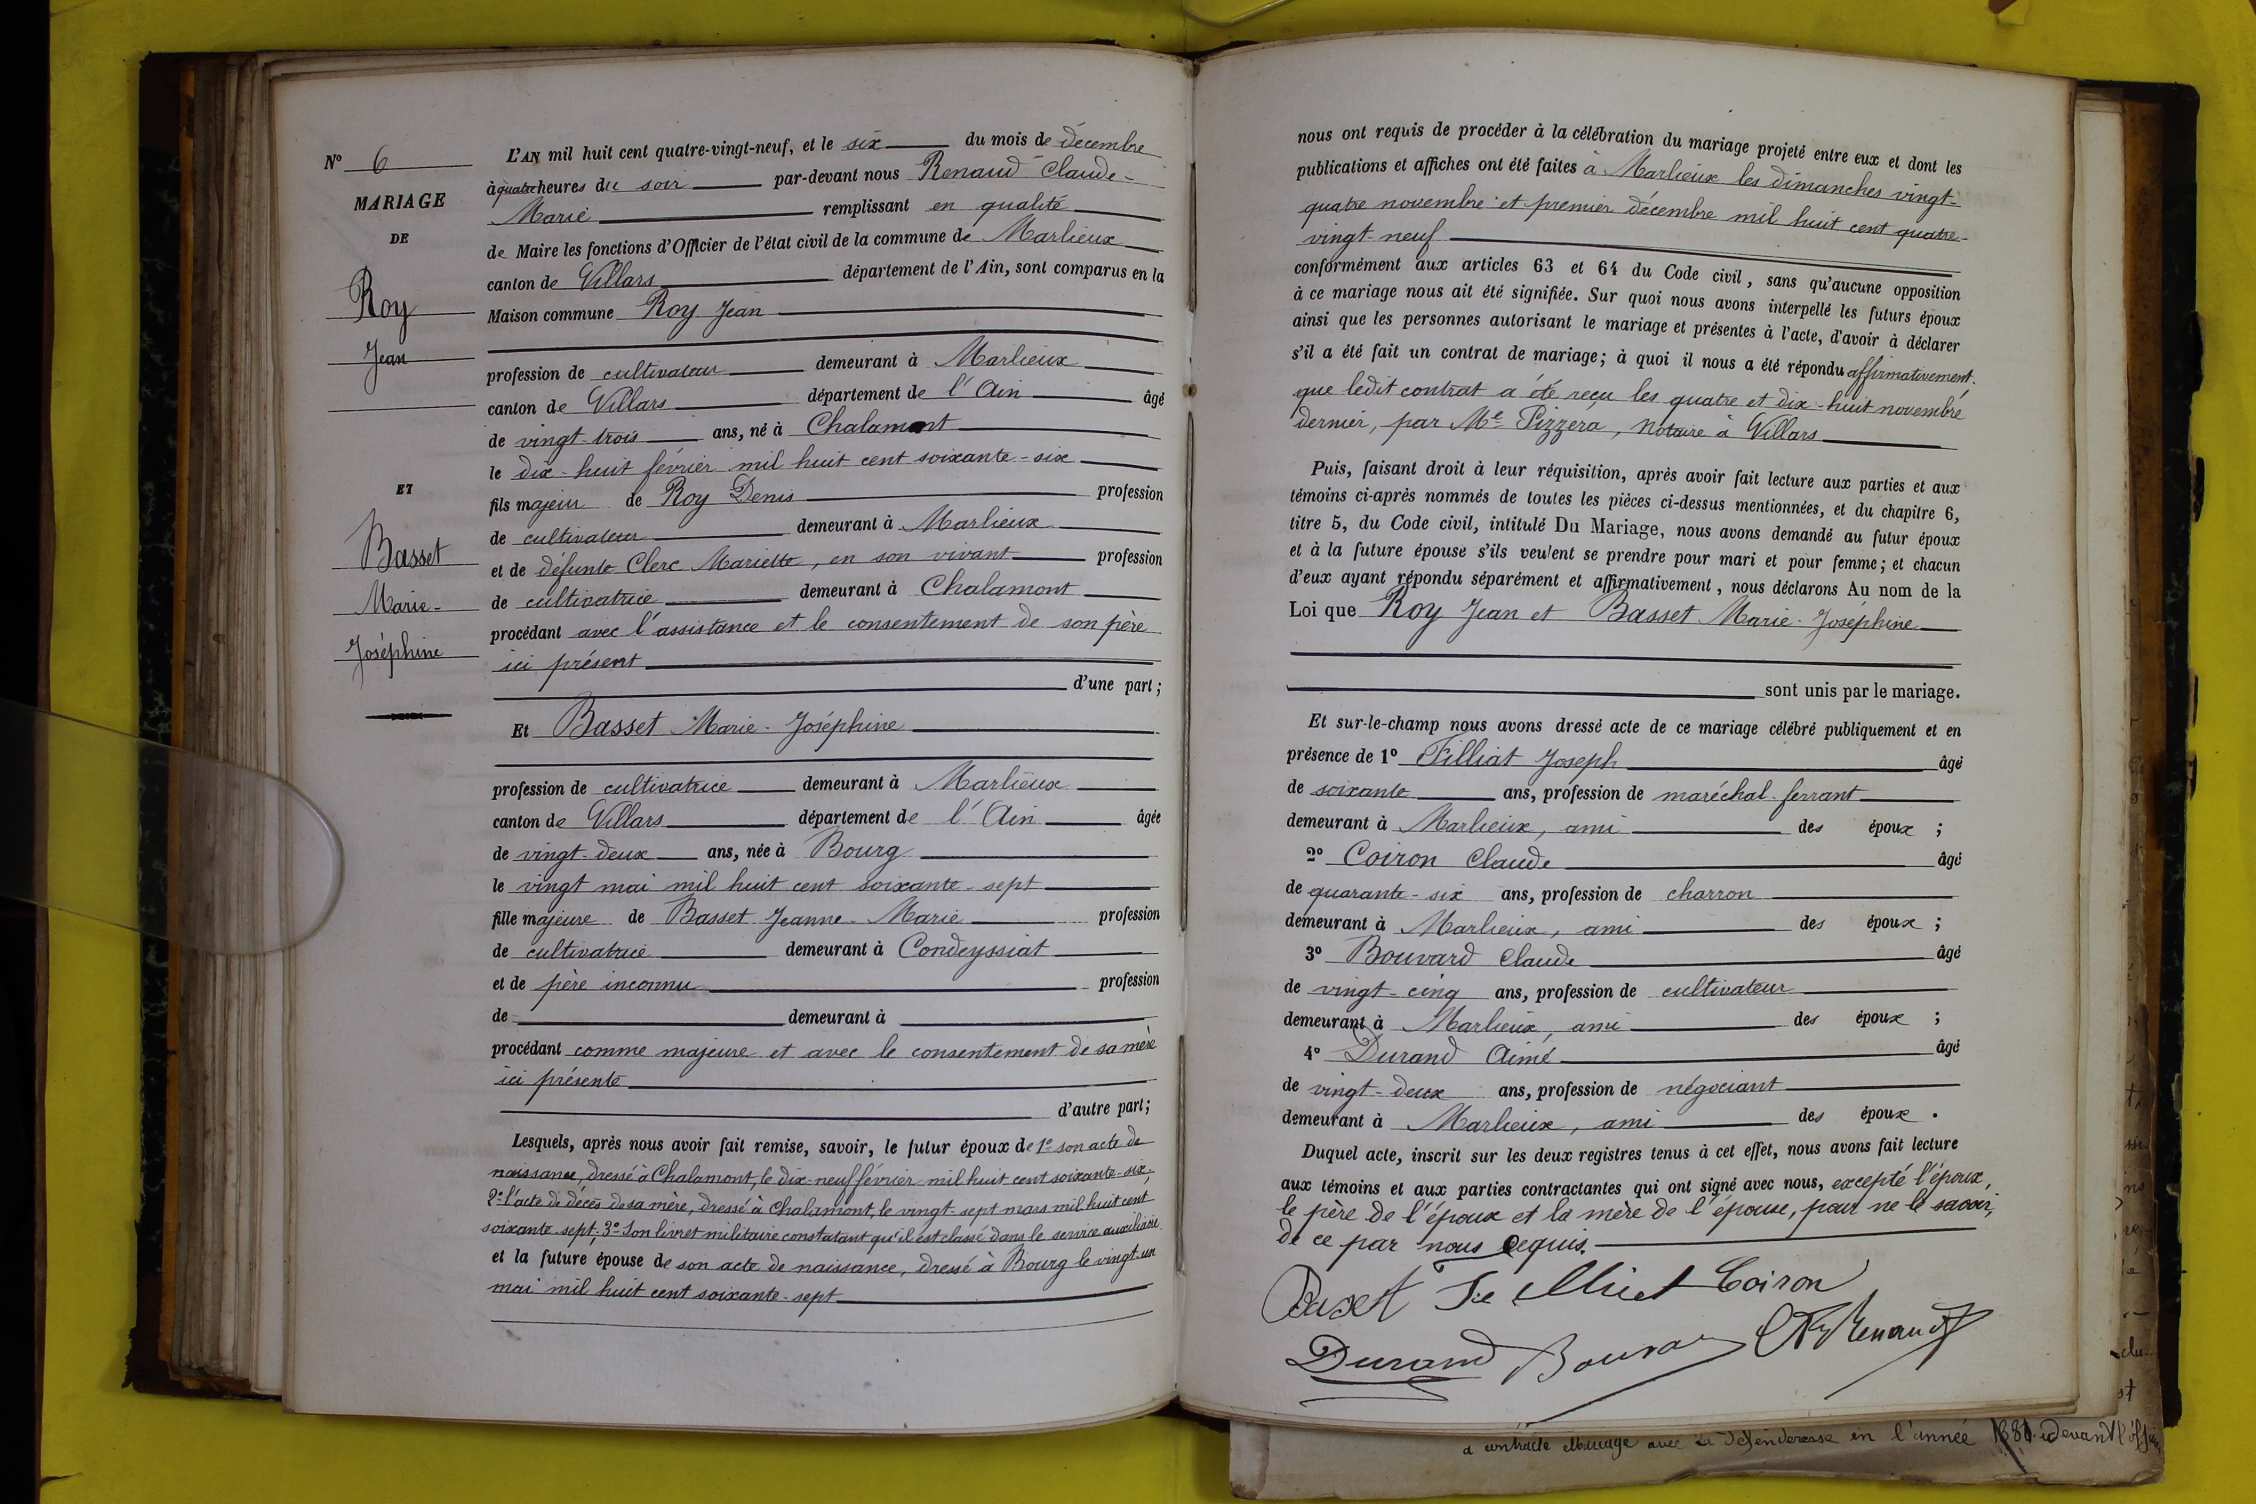 N° 6
MARIAGE
DE
Roy
Jean
ET
Basset
Marie-
Joséphine
L'AN mil huit cent quatre-vingt-neuf, et le six du mois de décembre
à quatre heures du soir par-devant nous Renaud Claude-
Marie remplissant en qualité
de Maire les fonctions d'Officier de l'état civil de la commune de Marlieux
canton de Villars département de l'Ain, sont comparus en la
Maison commune Roy Jean
profession de cultivateur demeurant à Marlieux
canton de Villars département de l'Ain âgé
de vingt-trois ans, né à Chalamont
le dix-huit février mil huit cent soixante-six
fils majeur de Roy Denis profession
de cultivateur demeurant à Marlieux
et de défunte Clerc Mariette, en son vivant profession
de cultivatrice demeurant à Chalamont
procédant avec l'assistance et le consentement de son père
ici présent
d'une part;
Et Basset Marie-Joséphine
profession de cultivatrice demeurant à Marlieux
canton de Villars département de l'Ain âgée
de vingt-deux ans, née à Bourg
le vingt mai mil huit cent soixante-sept
fille majeure de Basset Jeanne-Marie profession
de cultivatrice demeurant à Condeyssiat
et de père inconnu profession
de demeurant à
procédant comme majeure et avec le consentement de sa mère
ici présente
d'autre part;
Lesquels, après nous avoir fait remise, savoir, le futur époux de 1° son acte de
naissance, dressé à Chalamont, le dix-neuf février mil huit cent soixante-six;
2° l'acte de décès de sa mère, dressé à Chalamont, le vingt-sept mars mil huit cent
soixante-sept; 3° Son livret militaire constatant qu'il est classé dans le service auxiliaire
et la future épouse de son acte de naissance, dressé à Bourg le vingt-un
mai mil huit cent soixante-sept
nous ont requis de procéder à la célébration du mariage projeté entre eux et dont les
publications et affiches ont été faites à Marlieux les dimanches vingt-
quatre novembre et premier décembre mil huit cent quatre-
vingt-neuf
conformément aux articles 63 et 64 du Code civil, sans qu'aucune opposition
à ce mariage nous ait été signifiée. Sur quoi nous avons interpellé les futurs époux
ainsi que les personnes autorisant le mariage et présentes à l'acte, d'avoir à déclarer
s'il a été fait un contrat de mariage; à quoi il nous a été répondu affirmativement.
que ledit contrat a été reçu les quatre et dix-huit novembre
dernier, par Me Pizzera, Notaire à Villars
Puis, faisant droit à leur réquisition, après avoir fait lecture aux parties et aux
témoins ci-après nommés de toutes les pièces ci-dessus mentionnées, et du chapitre 6,
titre 5, du Code civil, intitulé Du Mariage, nous avons demandé au futur époux
et à la future épouse s'ils veulent se prendre pour mari et pour femme; et chacun
d'eux ayant répondu séparément et affirmativement, nous déclarons Au nom de la
Loi que Roy Jean et Basset Marie-Joséphine
sont unis par le mariage.
Et sur-le-champ nous avons dressé acte de ce mariage célébré publiquement et en
présence de 1° Filliat Joseph âgé
de soixante ans, profession de maréchal-ferrant
demeurant à Marlieux, ami des époux ;
2° Coiron Claude âgé
de quarante-six ans, profession de charron
demeurant à Marlieux, ami des époux ;
3° Bouvard Claude âgé
de vingt-cinq ans, profession de cultivateur
demeurant à Marlieux, ami des époux ;
4° Durand Aimé âgé
de vingt-deux ans, profession de négociant
demeurant à Marlieux, ami des époux.
Duquel acte, inscrit sur les deux registres tenus à cet effet, nous avons fait lecture
aux témoins et aux parties contractantes qui ont signé avec nous, excepté l'époux,
le père de l'époux et la mère de l'épouse, pour ne le savoir,
de ce par nous requis.
Basset Coiron
Durand Bouvar Renaud
a contracté Mariage avec la défenderesse en l'année 1881 devant